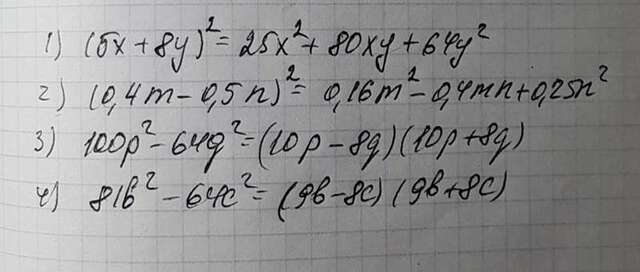 1) (5x + 8y)² = 25x² + 80xy + 64y²
2) (0,4m - 0,5n)² = 0,16m² - 0,4mn + 0,25n²
3) 100p² - 64q² = (10p - 8q)(10p + 8q)
4) 81b² - 64c² = (9b - 8c)(9b + 8c)